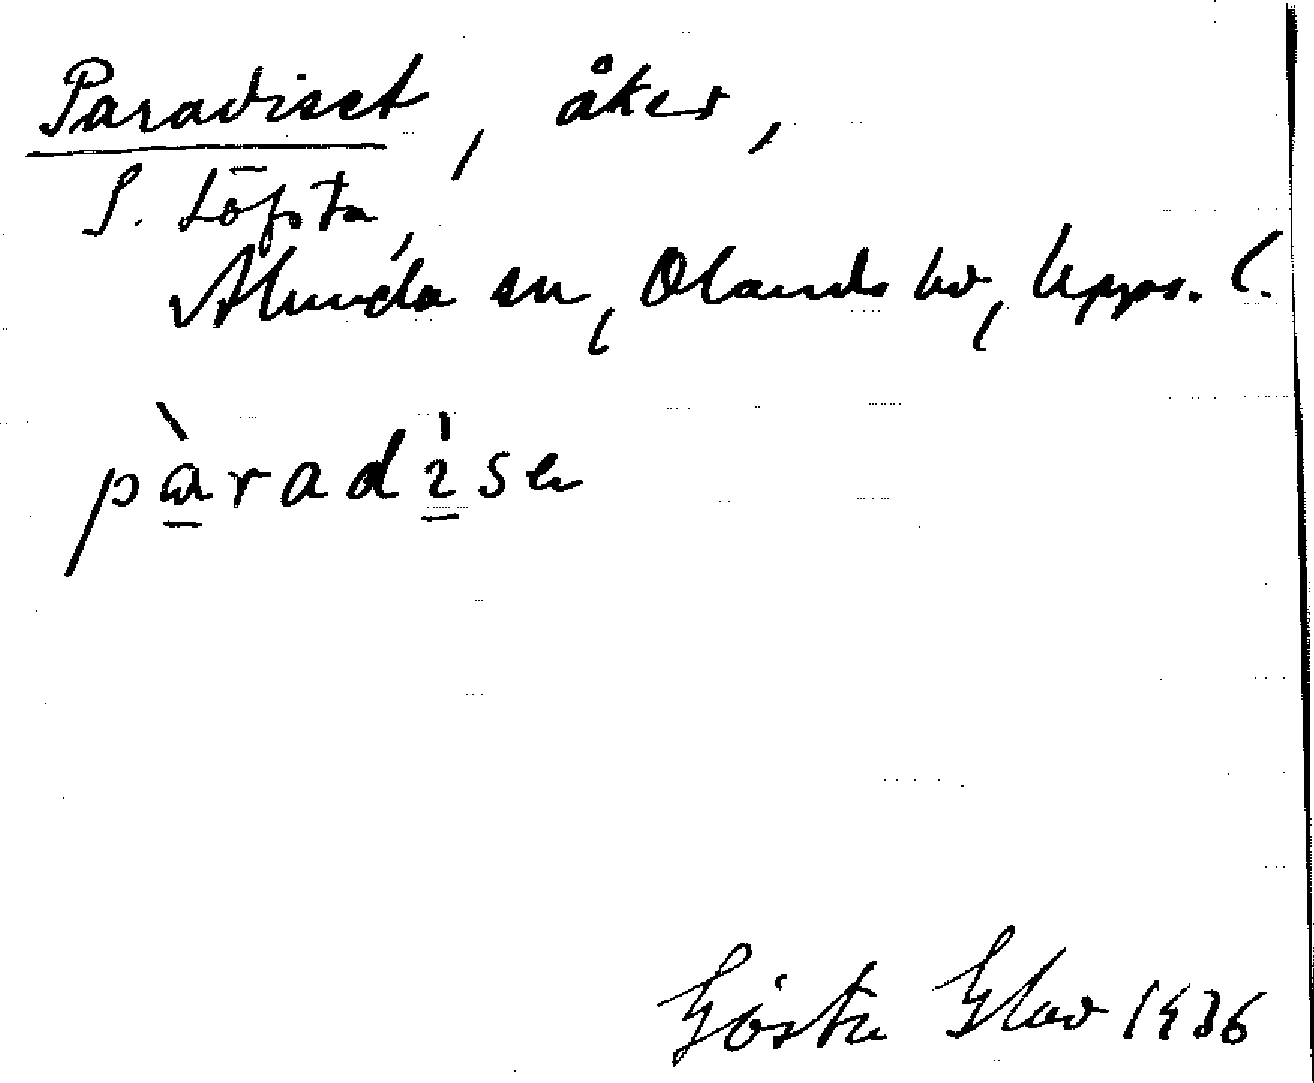 Paradiset, åker,
S. Löfsta,
Alunda sn, Olands hd, Upps. l.
pàradisen
Gösta Elav 1936